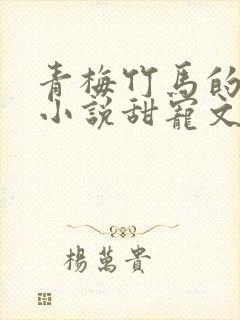 青梅竹馬的
小説甜寵文
楊萬貴